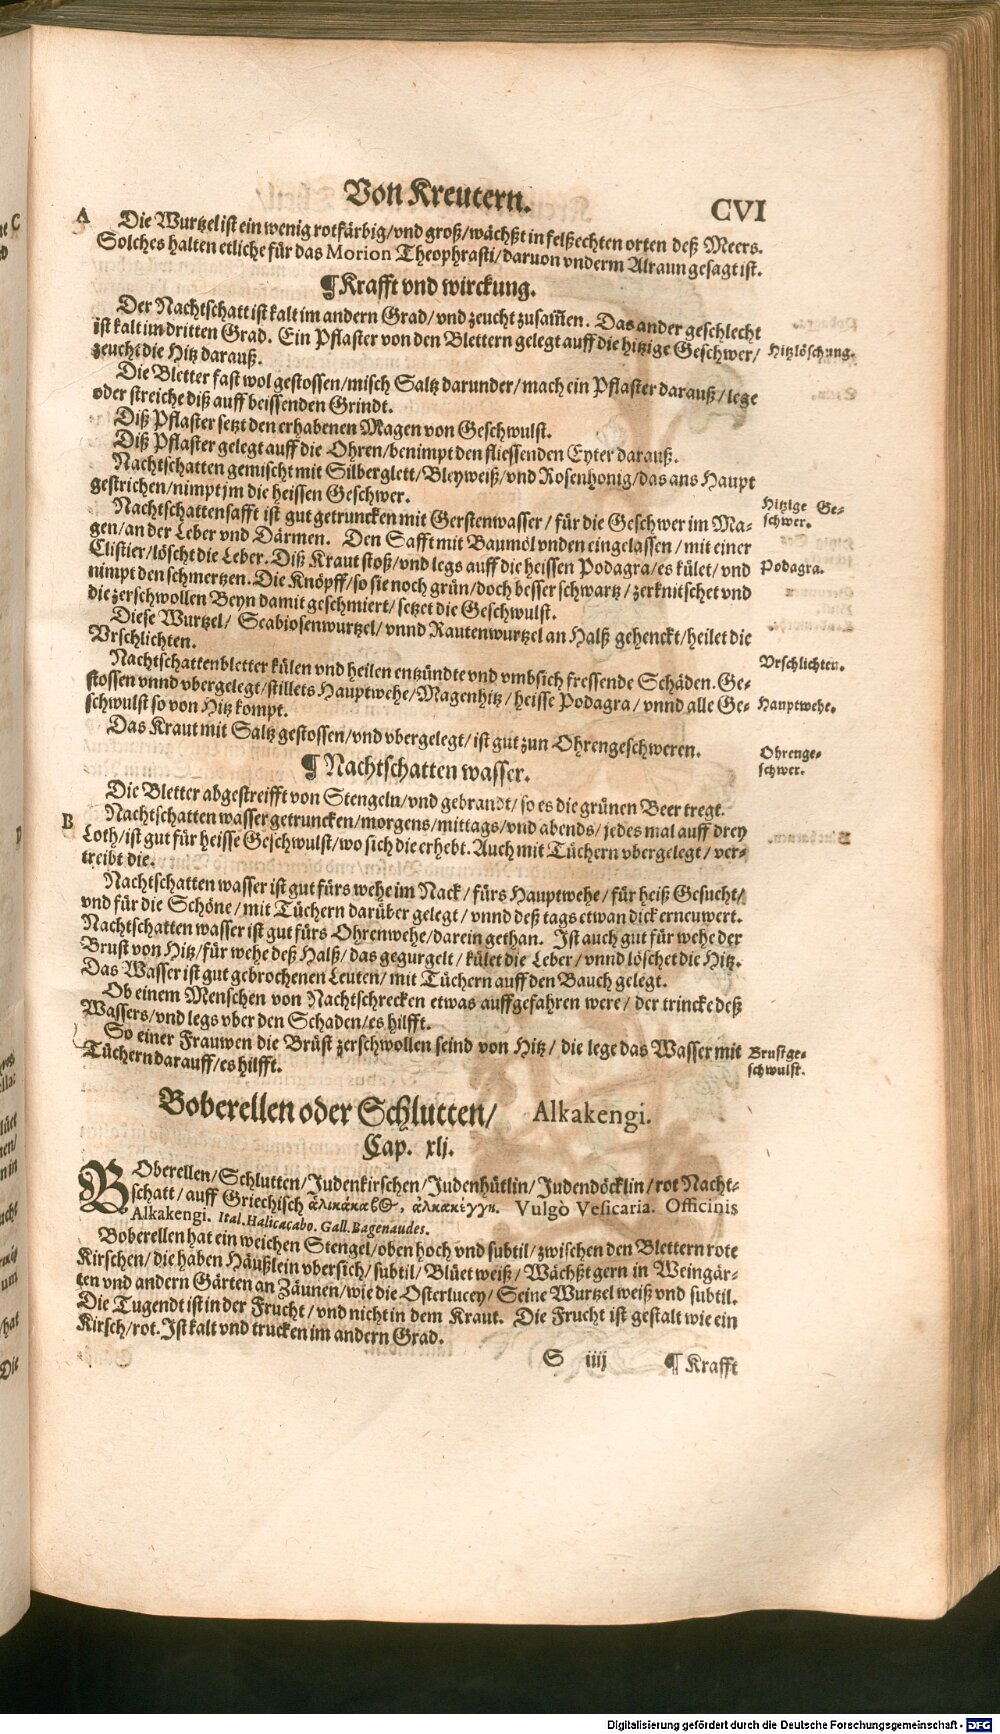 Von Kreutern.
CVI
A
Die Wurtzel ist ein wenig rotfärbig/vnd groß/wächßt in felßechten orten deß Meers.
Solches halten etliche für das Morion Theophrasti/daruon vnderm Alraun gesagt ist.
¶ Krafft vnd wirckung.
Der Nachtschatt ist kalt im andern Grad/vnd zeucht zusam̃en. Das ander geschlecht
ist kalt im dritten Grad. Ein Pflaster von den Blettern gelegt auff die hitzige Geschwer/
zeucht die Hitz darauß.
Hitzlöschung.
Die Bletter fast wol gestossen/misch Saltz darunder/mach ein Pflaster darauß/lege
oder streiche diß auff beissenden Grindt.
Diß Pflaster setzt den erhabenen Magen von Geschwulst.
Diß Pflaster gelegt auff die Ohren/benimpt den fliessenden Eyter darauß.
Nachtschatten gemischt mit Silberglett/Bleyweiß/vnd Rosenhonig/das ans Haupt
gestrichen/nimpt jm die heissen Geschwer.
Nachtschattensafft ist gut getruncken mit Gerstenwasser/für die Geschwer im Ma-
gen/an der Leber vnd Därmen. Den Safft mit Baumöl vnden eingelassen/mit einer
Clistier/löscht die Leber. Diß Kraut stoß/vnd legs auff die heissen Podagra/es kület/vnd
nimpt den schmertzen. Die Knöpff/so sie noch grün/doch besser schwartz/zerknitschet vnd
die zerschwollen Beyn damit geschmiert/setzet die Geschwulst.
Hitzige Ge-
schwer.
Podagra.
Diese Wurtzel/Scabiosenwurtzel/vnnd Rautenwurtzel an Halß gehenckt/heilet die
Vrschlichten.
Vrschlichten.
Nachtschattenbletter külen vnd heilen entzündte vnd vmbsich fressende Schäden. Ge-
stossen vnnd vbergelegt/stillets Hauptwehe/Magenhitz/heisse Podagra/vnnd alle Ge-
schwulst so von Hitz kompt.
Hauptwehe.
Das Kraut mit Saltz gestossen/vnd vbergelegt/ist gut zun Ohrengeschweren.
Ohrenge-
schwer.
¶ Nachtschatten wasser.
Die Bletter abgestreifft von Stengeln/vnd gebrandt/so es die grünen Beer tregt.
B
Nachtschatten wasser getruncken/morgens/mittags/vnd abends/jedes mal auff drey
Loth/ist gut für heisse Geschwulst/wo sich die erhebt. Auch mit Tüchern vbergelegt/ver-
treibt die.
Nachtschatten wasser ist gut fürs wehe im Nack/fürs Hauptwehe/für heiß Gesucht/
vnd für die Schöne/mit Tüchern darüber gelegt/vnnd deß tags etwan dick erneuwert.
Nachtschatten wasser ist gut fürs Ohrenwehe/darein gethan. Ist auch gut für wehe der
Brust von Hitz/für wehe deß Halß/das gegurgelt/kület die Leber/vnnd löschet die Hitz.
Das Wasser ist gut gebrochenen Leuten/mit Tüchern auff den Bauch gelegt.
Ob einem Menschen von Nachtschrecken etwas auffgefahren were/der trincke deß
Wassers/vnd legs vber den Schaden/es hilfft.
So einer Frauwen die Brüst zerschwollen seind von Hitz/die lege das Wasser mit
Tüchern darauff/es hilfft.
Brustge-
schwulst.
Boberellen oder Schlutten/ Alkakengi.
Cap. xlj.
BOberellen/Schlutten/Judenkirschen/Judenhütlin/Judendöcklin/rot Nacht-
schatt/auff Griechisch ἁλικάκαβ⊙, ἀλκακέγγι. Vulgò Vesicaria. Officinis
Alkakengi. Ital. Halicacabo. Gall. Bagenaudes.
Boberellen hat ein weichen Stengel/oben hoch vnd subtil/zwischen den Blettern rote
Kirschen/die haben Häußlein vbersich/subtil/Blüet weiß/Wächßt gern in Weingär-
ten vnd andern Gärten an Zäunen/wie die Osterlucey/Seine Wurtzel weiß vnd subtil.
Die Tugendt ist in der Frucht/vnd nicht in dem Kraut. Die Frucht ist gestalt wie ein
Kirsch/rot. Ist kalt vnd trucken im andern Grad.
S iiij ¶ Krafft
Digitalisierung gefördert durch die Deutsche Forschungsgemeinschaft - DFG